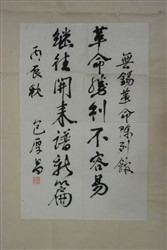 無锡革命陈列館
革命勝利不容易
继往開来譜新篇
丙辰秋
包厚昌